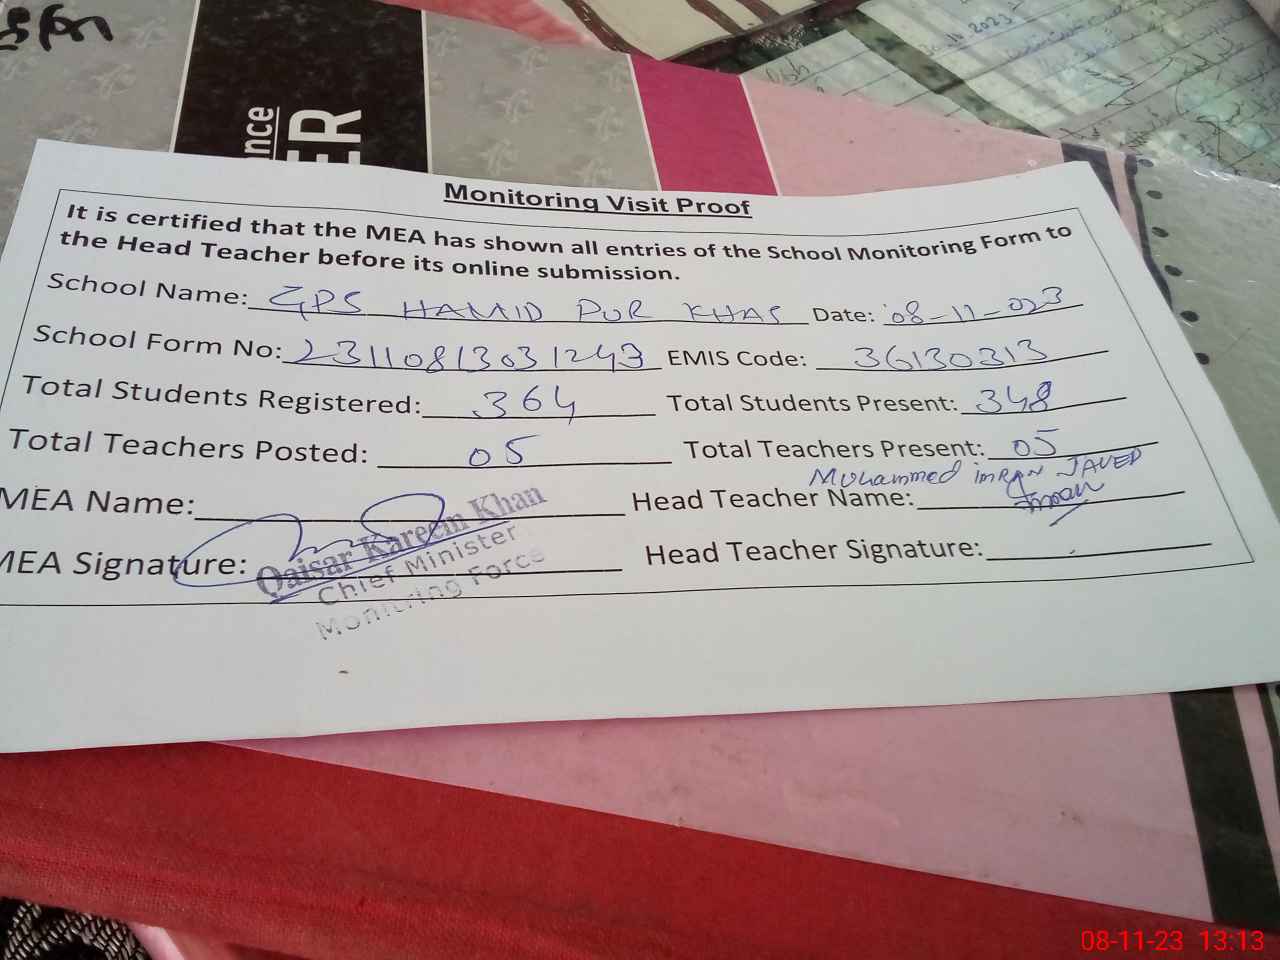 nce
ER
20.10.2023
Monitoring Visit Proof
It is certified that the MEA has shown all entries of the School Monitoring Form to
the Head Teacher before its online submission.
School Name: GPS HAMID PUR KHAS Date: 08-11-023
School Form No: 23110813031243 EMIS Code: 36130313
Total Students Registered: 364 Total Students Present: 348
Total Teachers Posted: 05 Total Teachers Present: 05
MEA Name: Head Teacher Name: Muhammed imRAN JAVED
MEA Signature: Head Teacher Signature:
Qaisar Kareem Khan
Chief Minister
Monitring Force
08-11-23 13:13